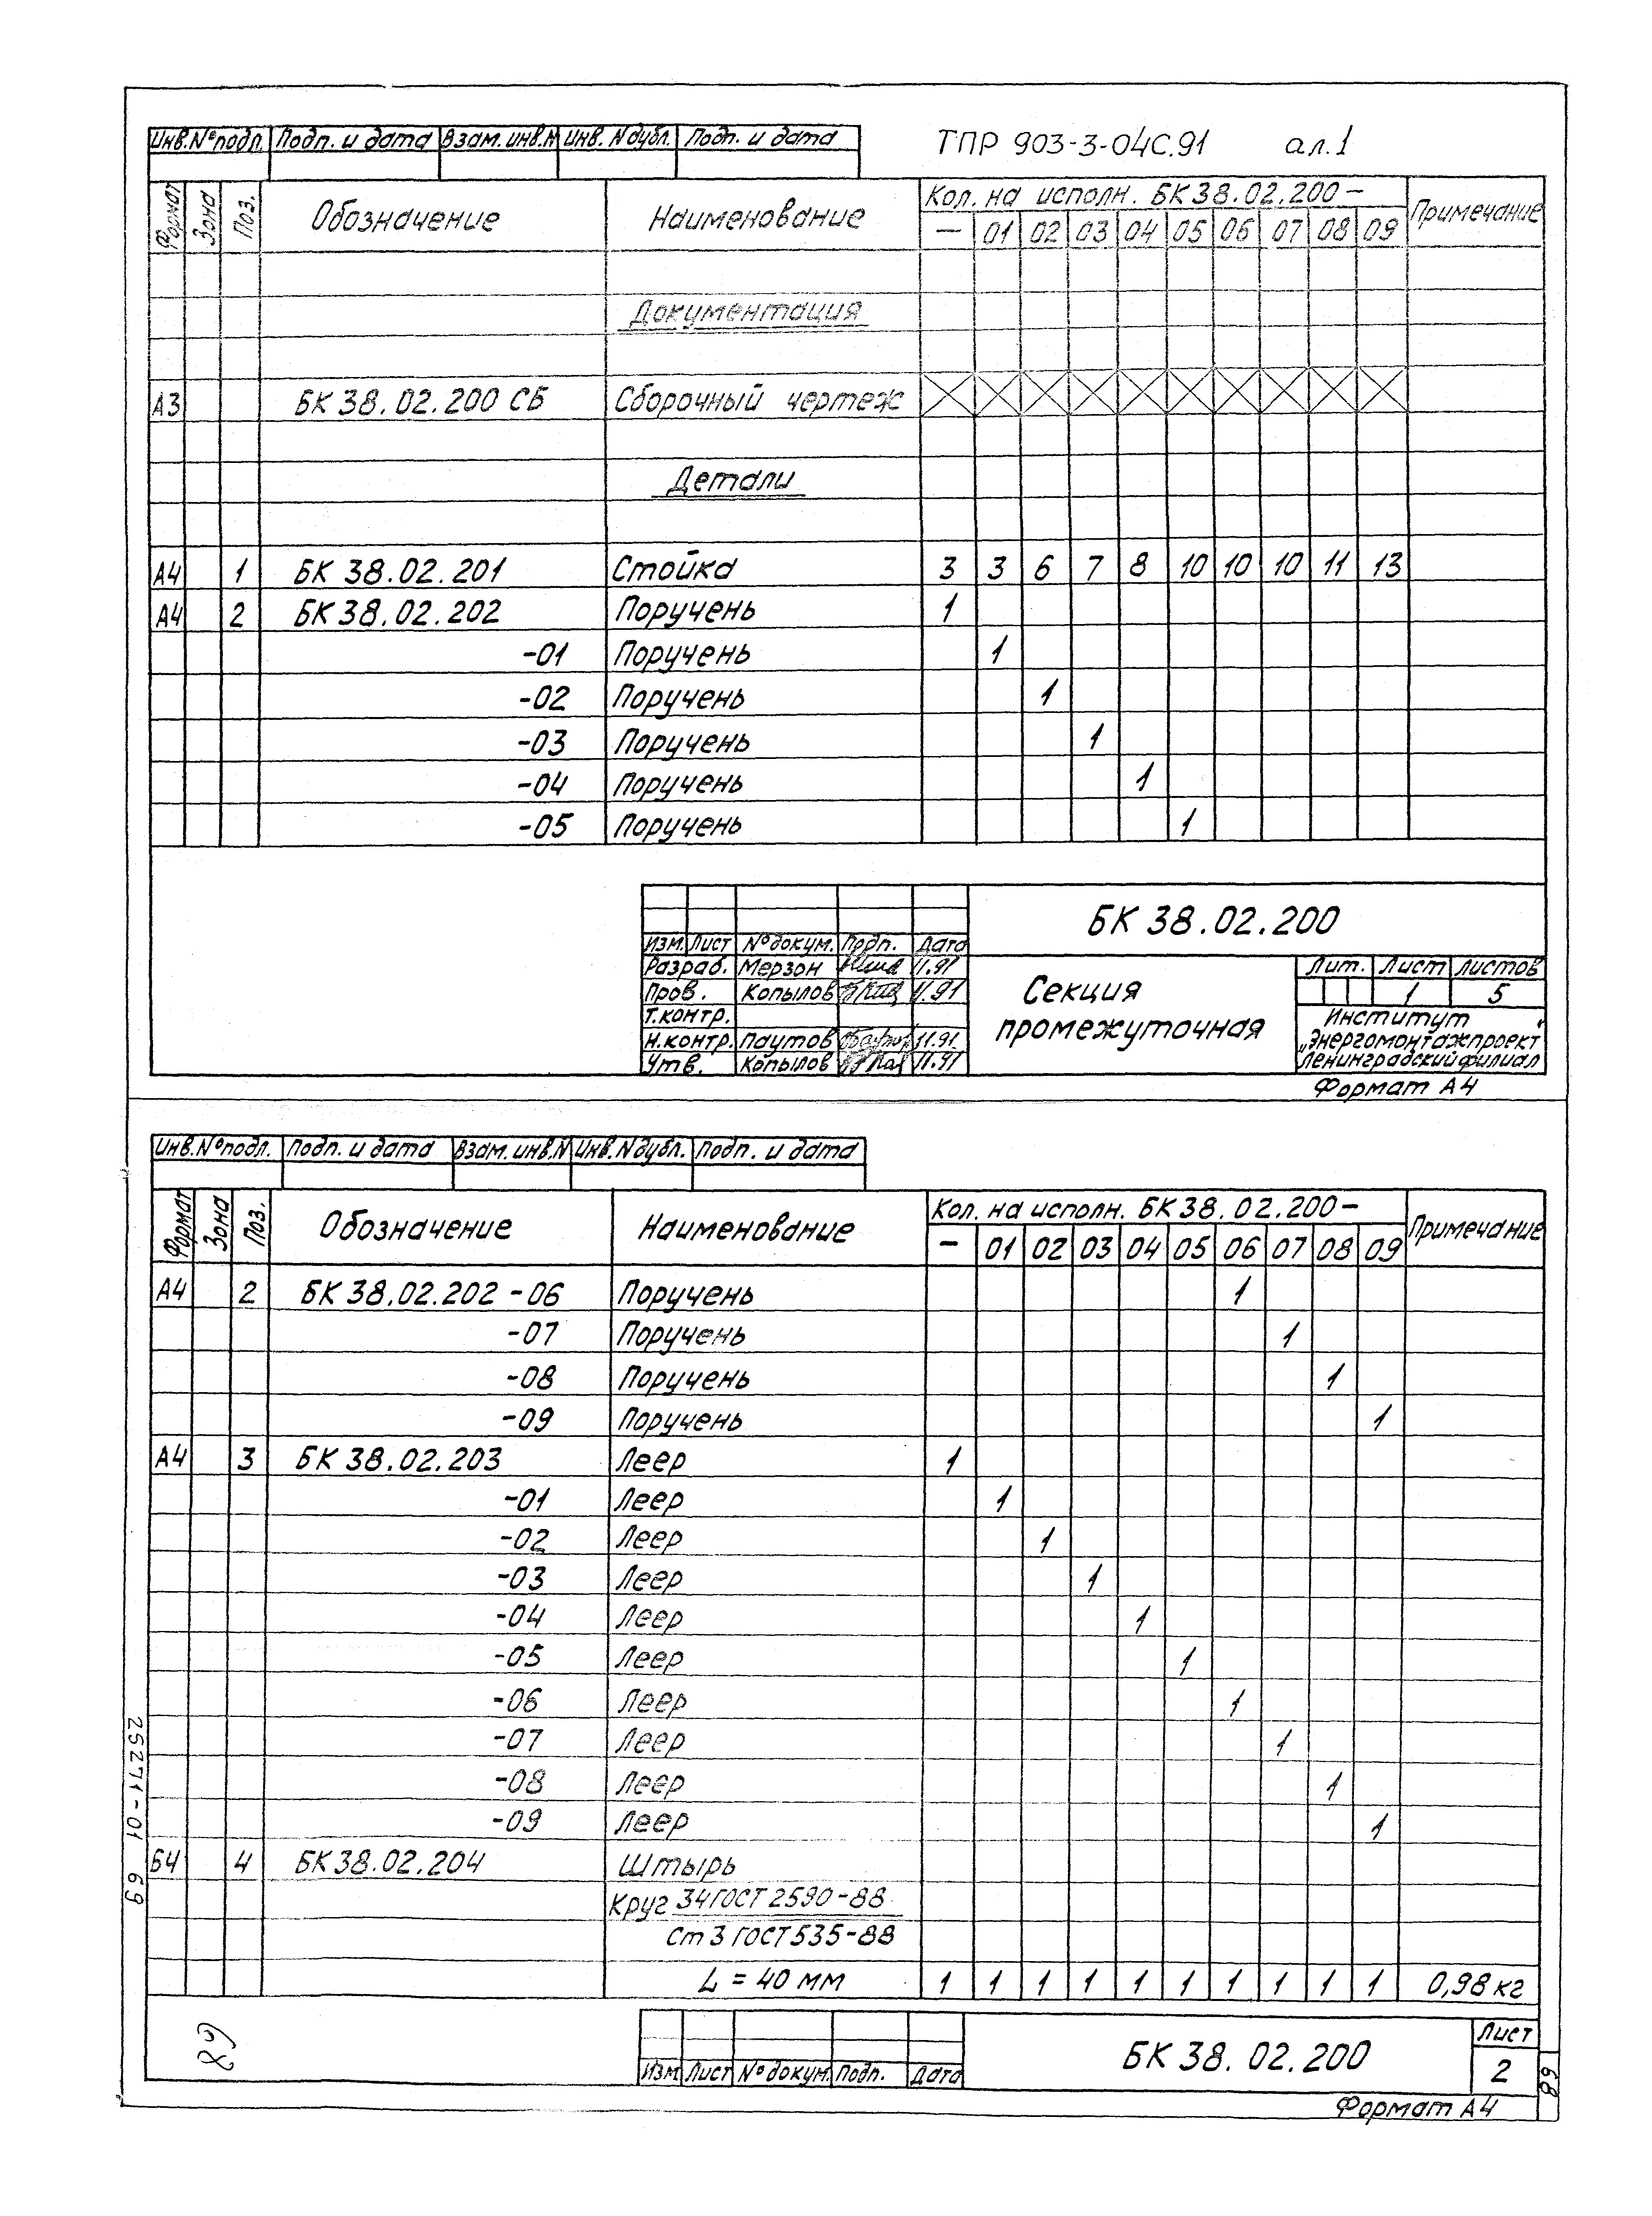 ТПР 903-3-04С.91 ал.1
Инв.№подл. Подп. и дата Взам. инв.N Инв. N дубл. Подп. и дата
Формат Зона Поз. Обозначение Наименование Кол. на исполн. БК 38.02.200 – Примечание
– 01 02 03 04 05 06 07 08 09
Документация
А3 БК 38.02.200 СБ Сборочный чертеж
Детали
А4 1 БК 38.02.201 Стойка 3 3 6 7 8 10 10 10 11 13
А4 2 БК 38.02.202 Поручень 1
-01 Поручень 1
-02 Поручень 1
-03 Поручень 1
-04 Поручень 1
-05 Поручень 1
БК 38.02.200
Изм. Лист № докум. Подп. Дата
Разраб. Мерзон 11.91
Пров. Копылов 11.91
Т.контр.
Н.контр. Паутов 11.91
Утв. Копылов 11.91
Секция
промежуточная
Лит. Лист Листов
1 5
Институт
„Энергомонтажпроект"
Ленинградский филиал
Формат А4
Инв.№подл. Подп. и дата Взам. инв.N Инв. N дубл. Подп. и дата
Формат Зона Поз. Обозначение Наименование Кол. на исполн. БК 38.02.200 – Примечание
– 01 02 03 04 05 06 07 08 09
А4 2 БК 38.02.202 - 06 Поручень 1
-07 Поручень 1
-08 Поручень 1
-09 Поручень 1
А4 3 БК 38.02.203 Леер 1
-01 Леер 1
-02 Леер 1
-03 Леер 1
-04 Леер 1
-05 Леер 1
-06 Леер 1
-07 Леер 1
-08 Леер 1
-09 Леер 1
Б4 4 БК 38.02.204 Штырь
Круг 34 ГОСТ 2590-88
Ст 3 ГОСТ 535-88
L = 40 мм 1 1 1 1 1 1 1 1 1 1 0,98 кг
25271-01 69
Изм Лист № докум. Подп. Дата
БК 38.02.200
Лист
2
68
Формат А4